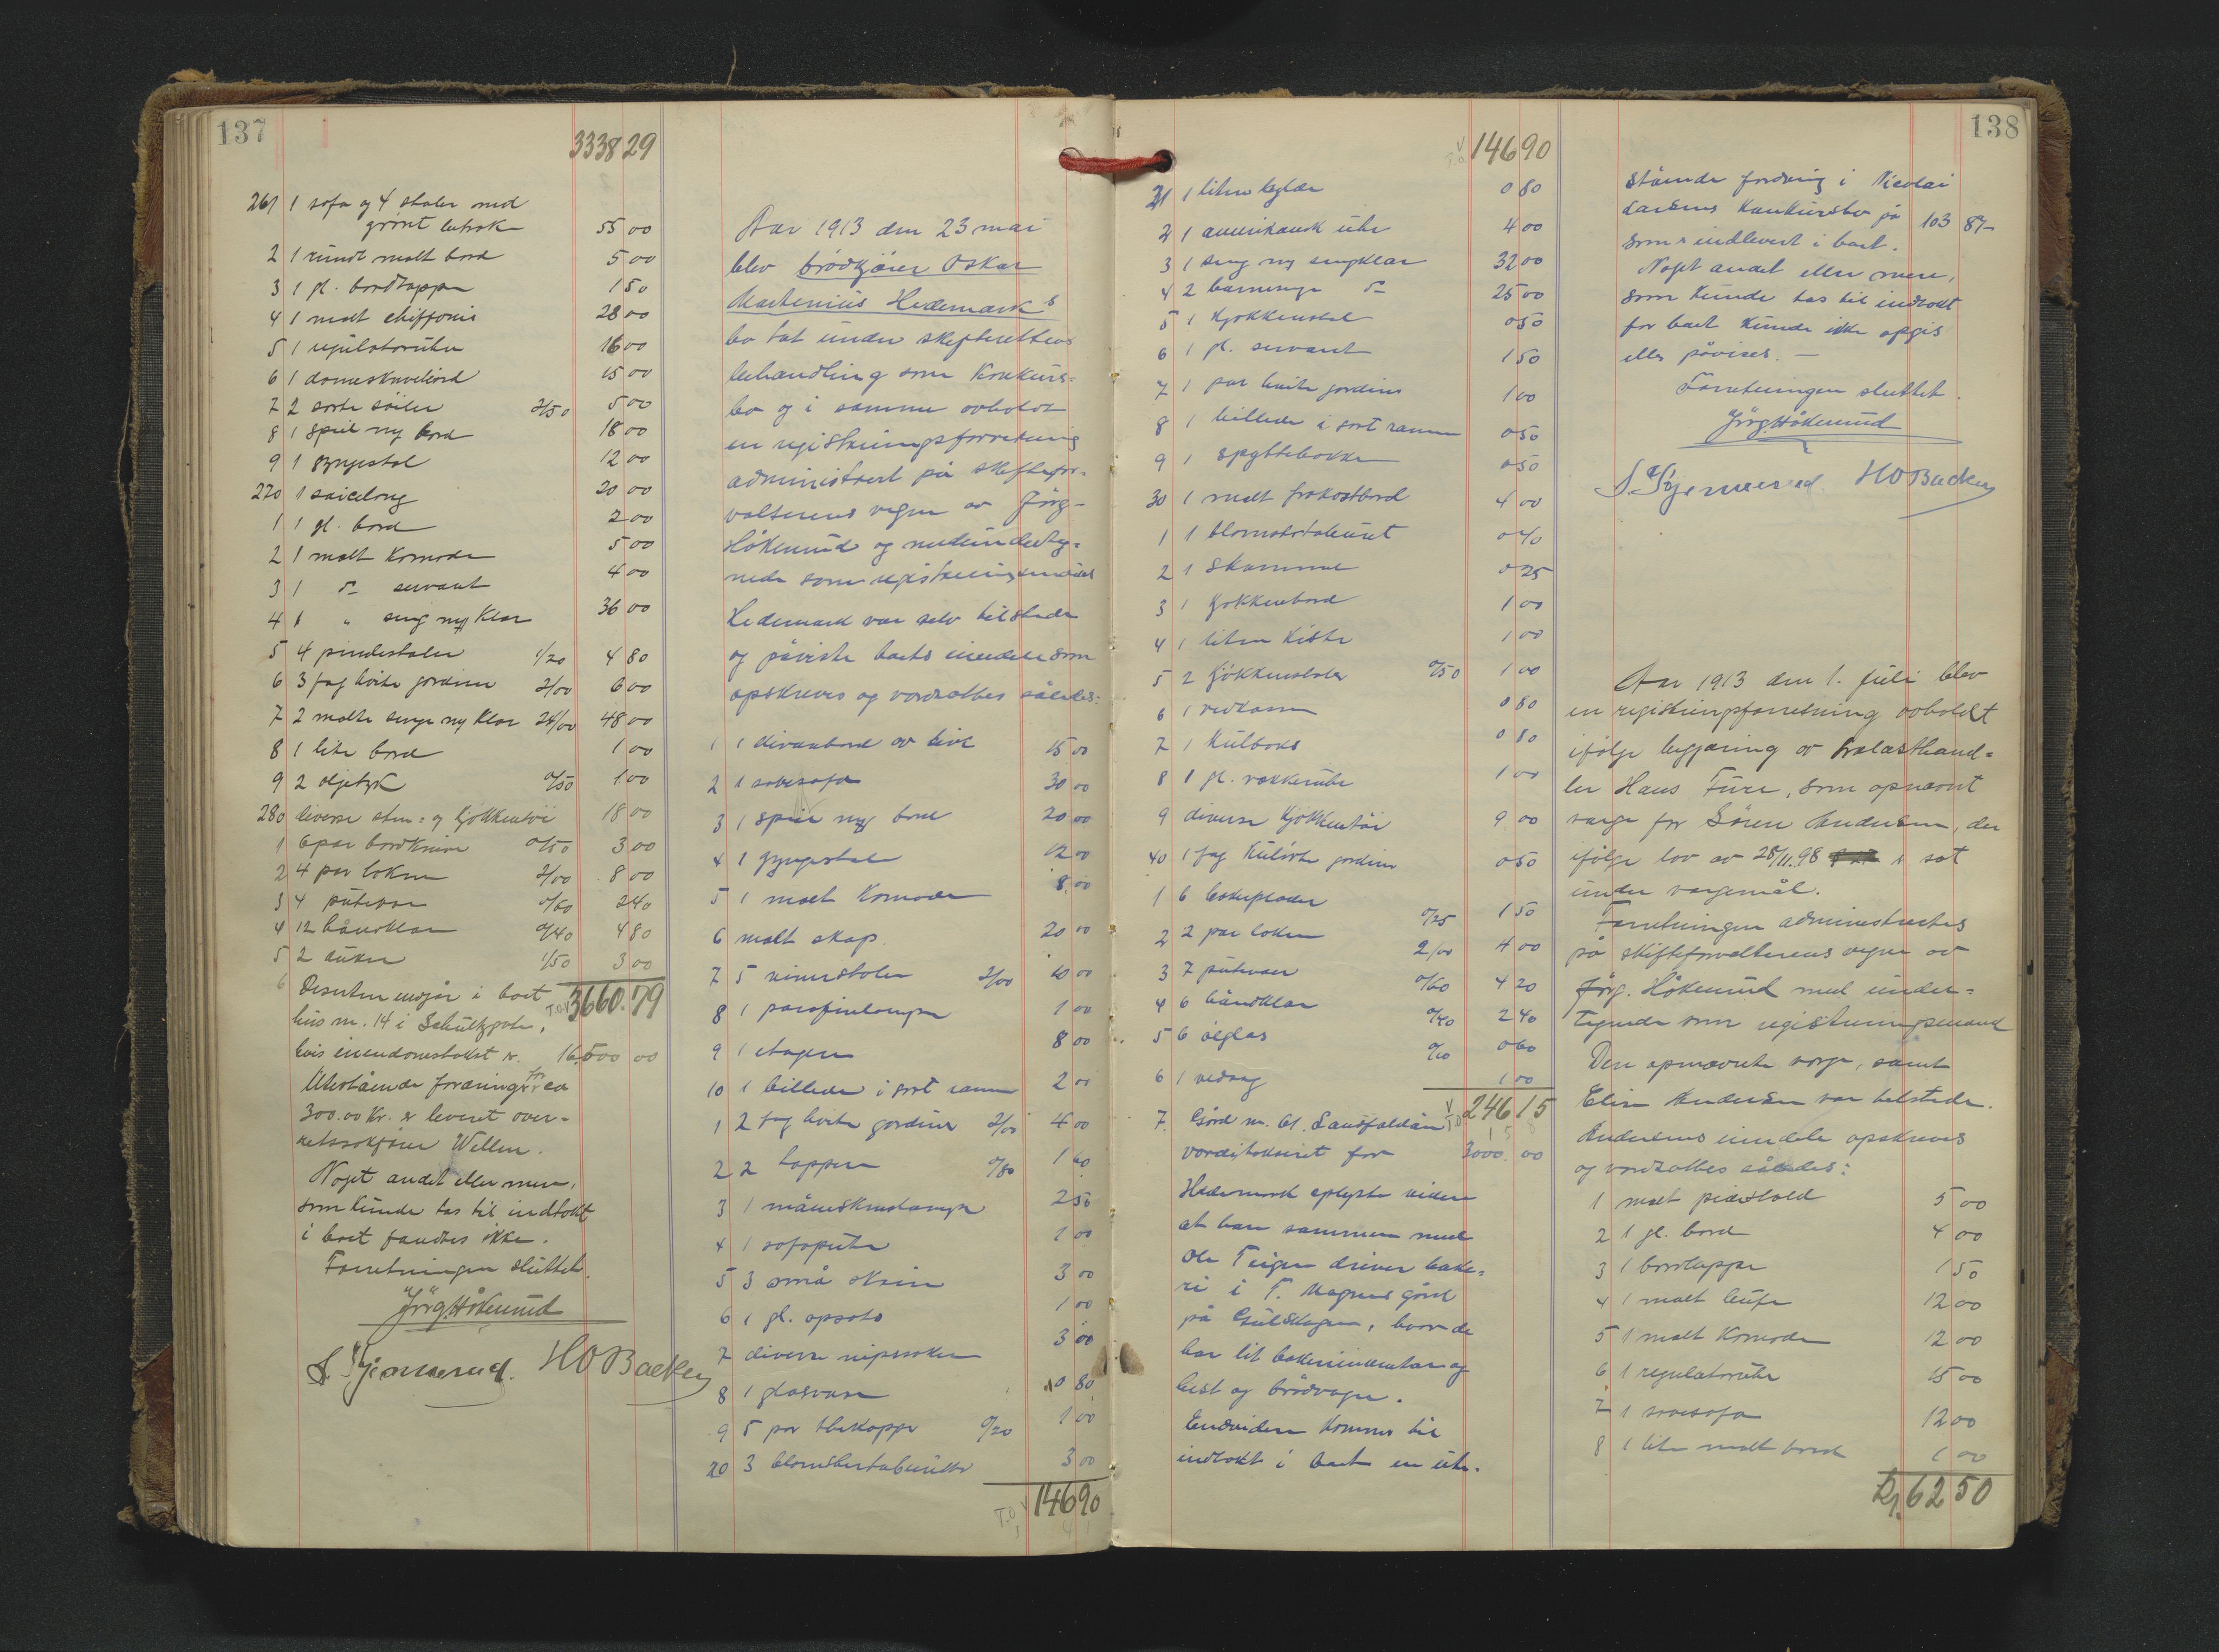 137
3338 29
261 1 sofa og 4 stoler med
grönt betræk 55 00
2 1 rundt malt bord 5 00
3 1 gl. bordteppe 1 50
4 1 malt chiffonie 28 00
5 1 regulatoruhr 16 00
6 1 dameskrivebord 15 00
7 2 sorte söiler 2/50 5 00
8 1 speil m/ bord 18 00
9 1 gyngestol 12 00
270 1 saicelong 20 00
1 1 gl. bord 2 00
2 1 malt komode 5 00
3 1 do servant 4 00
4 1 " seng m/ klær 36 00
5 4 pindestoler 1/20 4 80
6 3 fag hvite gardiner 2/00 6 00
7 2 malte senge m/ klær 24/00 48 00
8 1 lite bord 1 00
9 2 oljetryk 0/50 1 00
280 diverse sten= og kjökkentöi 18 00
1 6 par bordkniver 0/50 3 00
2 4 par lakner 2/00 8 00
3 4 putevar 0/60 2 40
4 12 håndklær 0/40 4 80
5 2 duker 1/50 3 00
6 Desuten indgår i boet T.O.V 3660.79
hus nr. 14 i Schultzgate,
hvis eiendomstakst er 16,500 00
Utestående fordringer for ca
300.00 Kr. er leveret over=
retssakförer Wellen.
Noget andet eller mere,
som kunde tas til indtækt
i boet fandtes ikke.
Forretningen sluttet.
Jörg. Håkerud
HO Backer
Aar 1913 den 23 mai
blev brödkjörer Oskar
Martinius Hedemark's
bo tat under skifterettens
behandling som konkurs=
bo og i samme avholdt
en registreringsforretning
administrert på skiftefor=
valterens vegne av Jörg=
Håkerud og medunderteg=
nede som registreringsmænd
Hedemark var selv tilstede
og påviste boets eiendele som
opskreves og værdsattes således:
1 1 divanbord av eik 15 00
2 1 sovesofa 30 00
3 1 speil m/ bord 20 00
4 1 gyngestol 12 00
5 1 malt komode 8 00
6 malt skap 20 00
7 5 wienerstoler 2/00 10 00
8 1 parafinlampe 1 00
9 1 etagere 8 00
10 1 billede i sort ramme 2 00
1 2 fag hvite gardiner 2/00 4 00
2 2 tepper 0/80 1 60
3 1 måneskinslampe 2 50
4 1 sofapute 1 00
5 3 små skrin 3 00
6 1 gl. opsats 1 00
7 diverse nipssaker 3 00
8 1 glasvase 0 80
9 5 par thekopper 0/20 1 00
20 3 blomsterbuketter 3 00
T.O V 146 90
138
V 146 90
21 1 liten 0 80
2 1 amerikansk uhr 4 00
3 1 seng m/ sengklær 32 00
4 2 barnesenge do 25 00
5 1 kjökkenstol 0 50
6 1 gl. servant 1 50
7 1 par hvite gardiner 1 00
8 1 billede i sort ramme 0 50
9 1 spyttebakke 0 50
30 1 malt frokostbord 4 00
1 1 blomstertaburet 0 40
2 1 skammel 0 25
3 1 kjökkenbord 1 00
4 1 liten kiste 1 00
5 2 kjökkenstoler 0/50 1 00
6 1 vedkasse 0 80
7 1 kulboks 0 80
8 1 gl. vækkeruhr 1 00
9 diverse kjökkentöi 9 00
40 1 fag kulörte gardiner 0 50
1 6 bakeplader 0/25 1 50
2 2 par lakner 2/00 4 00
3 7 putevar 0/60 4 20
4 6 håndklær 0/40 2 40
5 6 ölglas 0/10 0 60
6 1 vedsag 1 00
V 246 15
7 Gård nr. 61. Landfaldöen
værditakseret for 3000.00
Hedemark oplyste videre
at han sammen med
Ole Teigen driver bake=
ri i T. Magnus gård
på Gulskogen, hvor de
har lit bakeriinventar og
hest og brödvogn.
Endvidere kommer til
indtækt i boet en ute-
stående fordring i Nicolai
Larsens konkursbo på 103 87
som er indlevert i boet.
Noget andet eller mere,
som kunde tas til indtækt
for boet kunde ikke opgis
eller påvises. —
Forretningen sluttet.
Jörg. Håkerud
HO Backer
Aar 1913 den 1. juli blev
en registreringsforretning avholdt
ifölge begjæring av trælasthand=
ler Hans Fure, som opnævnt
værge for Sören Andersen, der
ifölge lov av 28/11.98 er sat
under værgemål.
Forretningen administrertes
på skifteforvalterens vegne av
Jörg. Håkerud med under=
tegnede som registreringsmænd
Den opnævnte værge, samt
Elise Andersen var tilstede.
Andersens eiendele opskreves
og værdsattes således:
1 malt 5 00
2 1 gl. bord 4 00
3 1 bordteppe 1 50
4 1 malt buffe 12 00
5 1 malt komode 12 00
6 1 regulatoruhr 15 00
7 1 sovesofa 12 00
8 1 lite malt bord 1 00
62 50